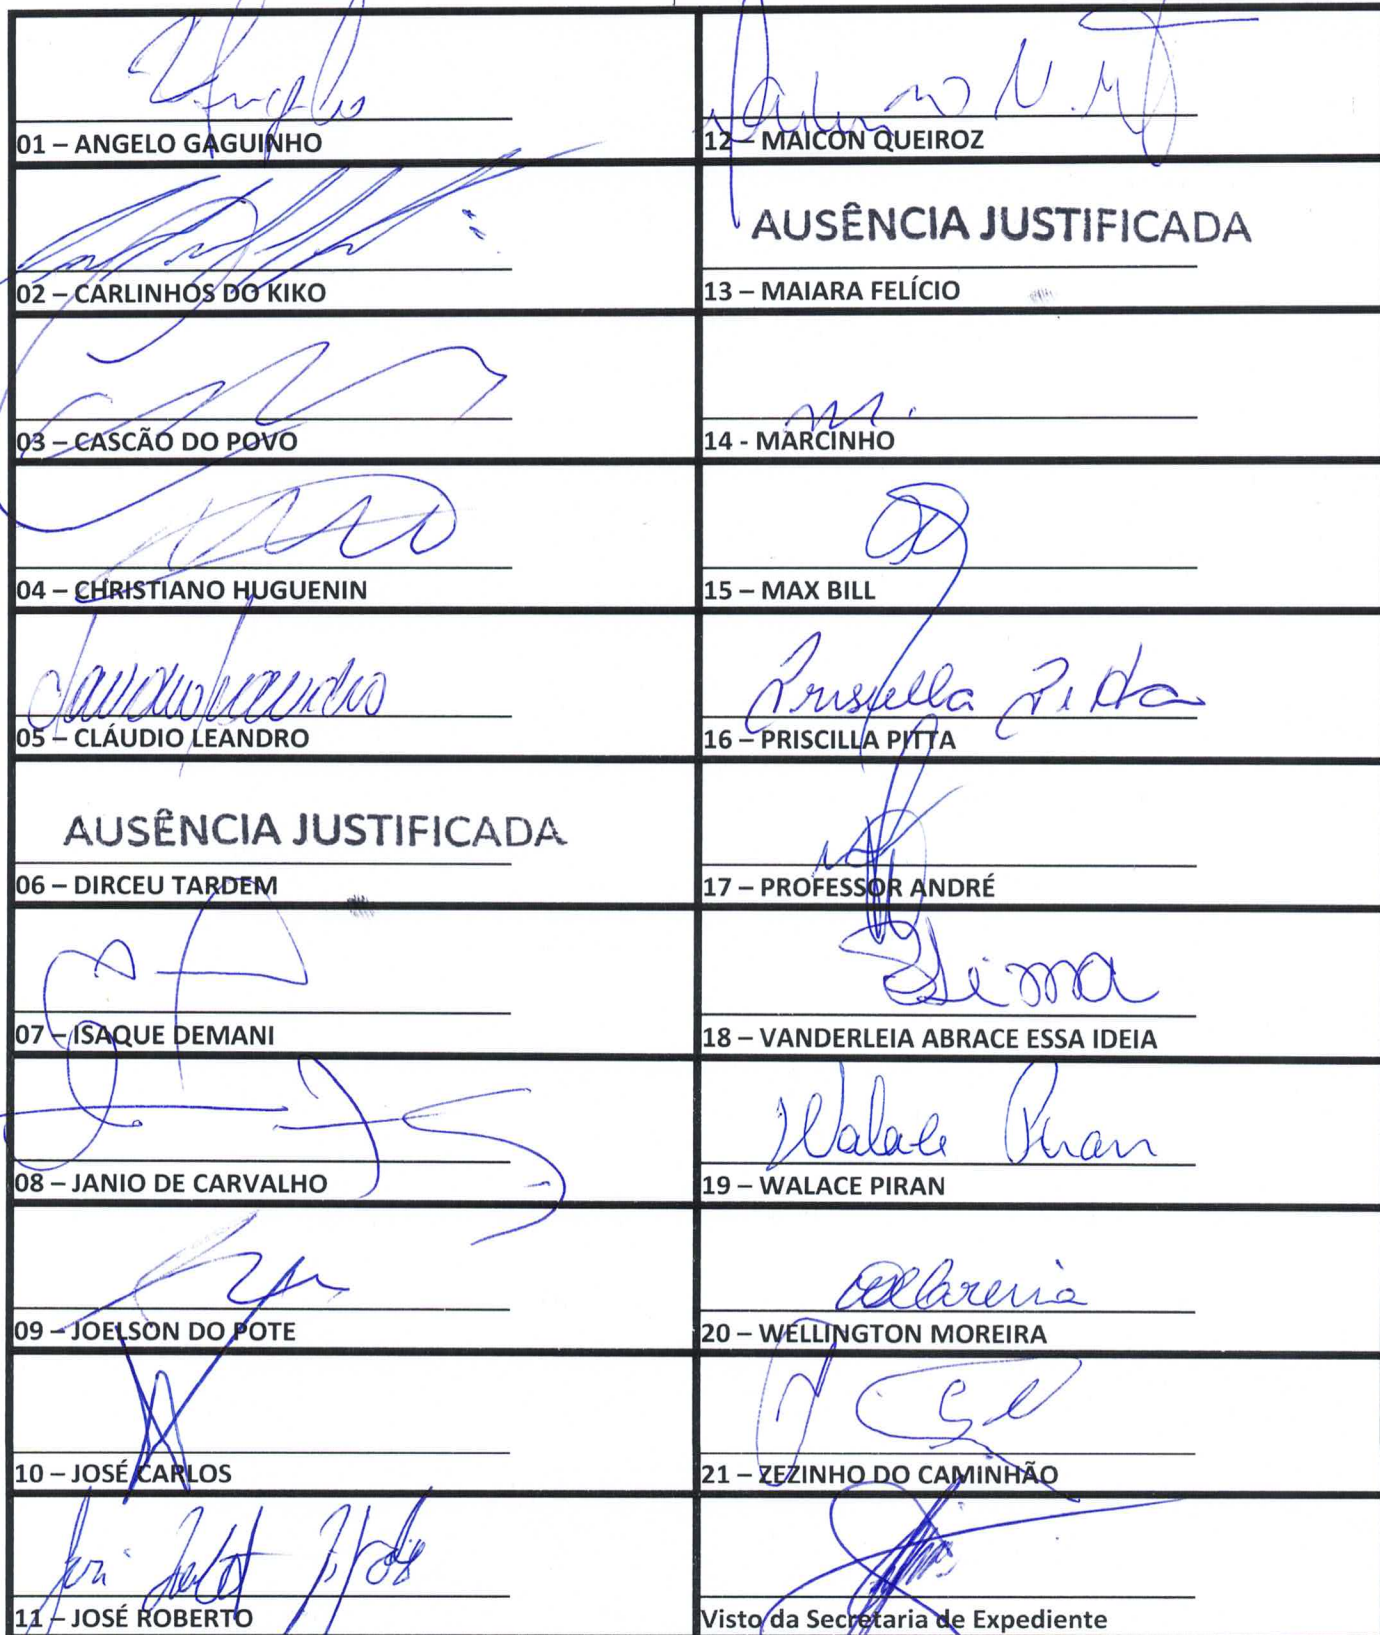 Angelo
01 – ANGELO GAGUINHO
02 – CARLINHOS DO KIKO
03 – CASCÃO DO POVO
04 – CHRISTIANO HUGUENIN
Claudio Leandro
05 – CLÁUDIO LEANDRO
AUSÊNCIA JUSTIFICADA
06 – DIRCEU TARDEM
07 – ISAQUE DEMANI
08 – JANIO DE CARVALHO
09 – JOELSON DO POTE
10 – JOSÉ CARLOS
11 – JOSÉ ROBERTO
12 – MAICON QUEIROZ
AUSÊNCIA JUSTIFICADA
13 – MAIARA FELÍCIO
14 - MARCINHO
15 – MAX BILL
Priscilla Pitta
16 – PRISCILLA PITTA
17 – PROFESSOR ANDRÉ
18 – VANDERLEIA ABRACE ESSA IDEIA
Walace Piran
19 – WALACE PIRAN
20 – WELLINGTON MOREIRA
21 – ZEZINHO DO CAMINHÃO
Visto da Secretaria de Expediente